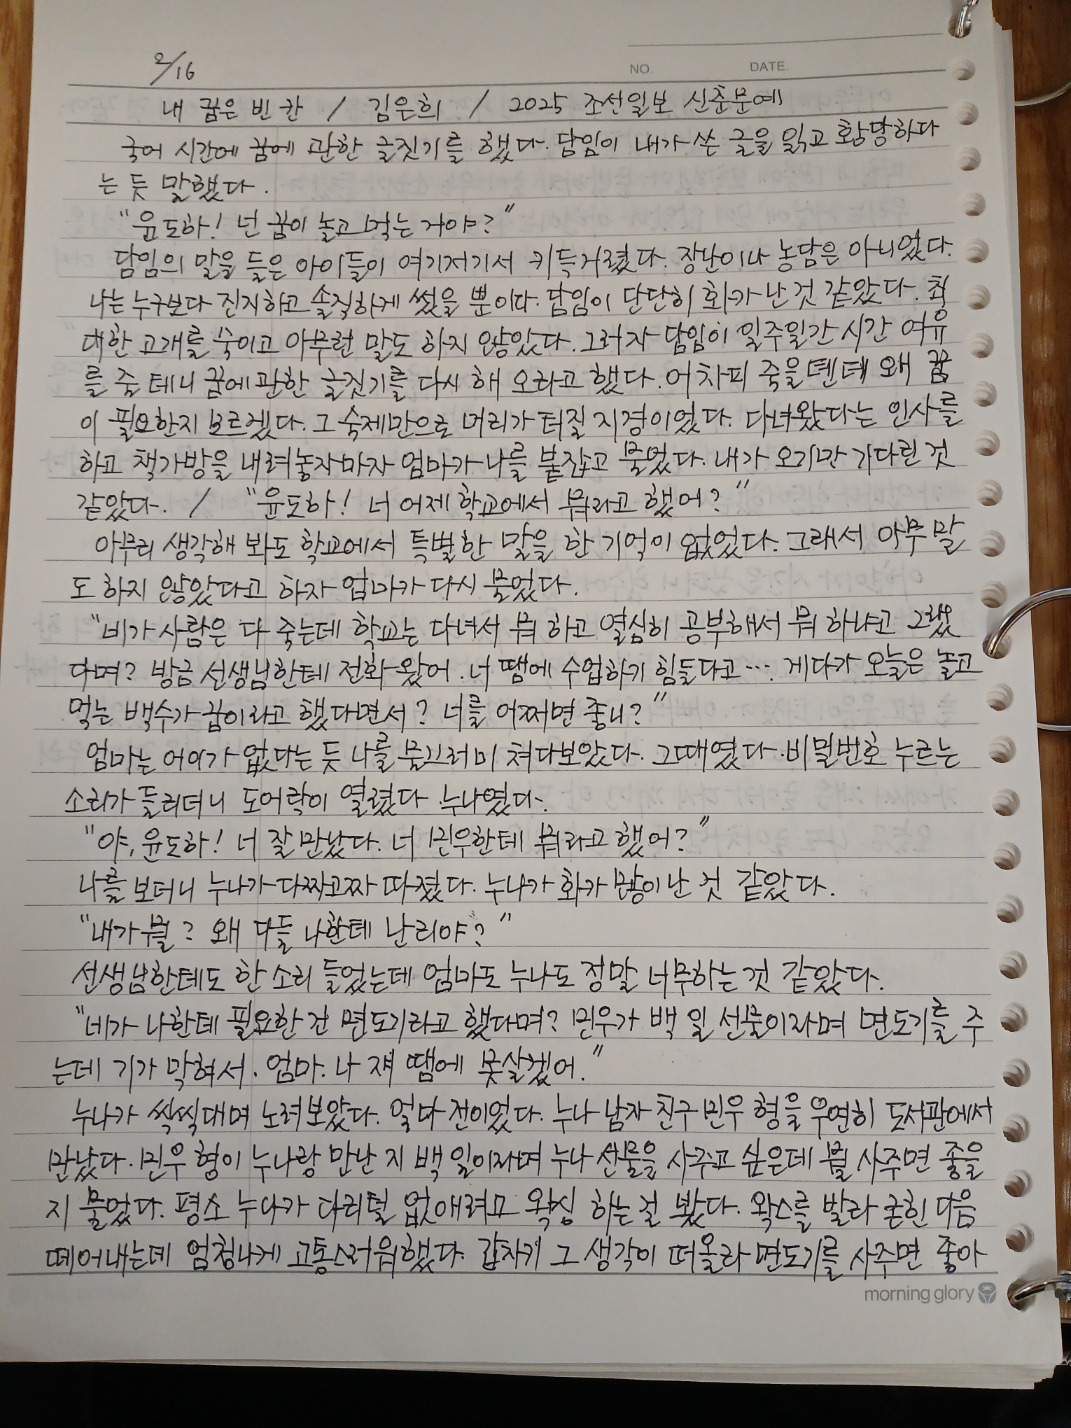 2/16
NO. DATE.
내 꿈은 빈 칸 / 김은희 / 2025 조선일보 신춘문예
국어 시간에 꿈에 관한 글짓기를 했다. 담임이 내가 쓴 글을 읽고 황당하다
는 듯 말했다.
"윤도하! 넌 꿈이 놀고 먹는 거야?"
담임의 말을 들은 아이들이 여기저기서 키득거렸다. 장난이나 농담은 아니었다.
나는 누구보다 진지하고 솔직하게 썼을 뿐이다. 담임이 단단히 화가 난 것 같았다. 최
대한 고개를 숙이고 아무런 말도 하지 않았다. 그러자 담임이 일주일간 시간 여유
를 줄 테니 꿈에 관한 글짓기를 다시 해 오라고 했다. 어차피 죽을 텐데 왜 꿈
이 필요한지 모르겠다. 그 숙제만으로 머리가 터질 지경이었다. 다녀왔다는 인사를
하고 책가방을 내려놓자마자 엄마가 나를 붙잡고 물었다. 내가 오기만 기다린 것
같았다. / "윤도하! 너 어제 학교에서 뭐라고 했어?"
아무리 생각해 봐도 학교에서 특별한 말을 한 기억이 없었다. 그래서 아무 말
도 하지 않았다고 하자 엄마가 다시 물었다.
"네가 사람은 다 죽는데 학교는 다녀서 뭐 하고 열심히 공부해서 뭐 하냐고 그랬
다며? 방금 선생님한테 전화 왔어. 너 땜에 수업하기 힘들다고… 게다가 오늘은 놀고
먹는 백수가 꿈이라고 했다면서? 너를 어쩌면 좋니?"
엄마는 어이가 없다는 듯 나를 물끄러미 쳐다보았다. 그때였다. 비밀번호 누르는
소리가 들리더니 도어락이 열렸다. 누나였다.
"야, 윤도하! 너 잘 만났다. 너 민우한테 뭐라고 했어?"
나를 보더니 누나가 다짜고짜 따졌다. 누나가 화가 많이 난 것 같았다.
"내가 뭘? 왜 다들 나한테 난리야?"
선생님한테도 한 소리 들었는데 엄마도 누나도 정말 너무하는 것 같았다.
"네가 나한테 필요한 건 면도기라고 했다며? 민우가 백 일 선물이라며 면도기를 주
는데 기가 막혀서. 엄마. 나 쟤 땜에 못살겠어."
누나가 씩씩대며 노려보았다. 얼마 전이었다. 누나 남자 친구 민우 형을 우연히 도서관에서
만났다. 민우 형이 누나랑 만난 지 백 일이라며 누나 선물을 사주고 싶은데 뭘 사주면 좋을
지 물었다. 평소 누나가 다리털 없애려고 왁싱 하는 걸 봤다. 왁스를 발라 굳힌 다음
떼어내는데 엄청나게 고통스러워했다. 갑자기 그 생각이 떠올라 면도기를 사주면 좋아
morning glory